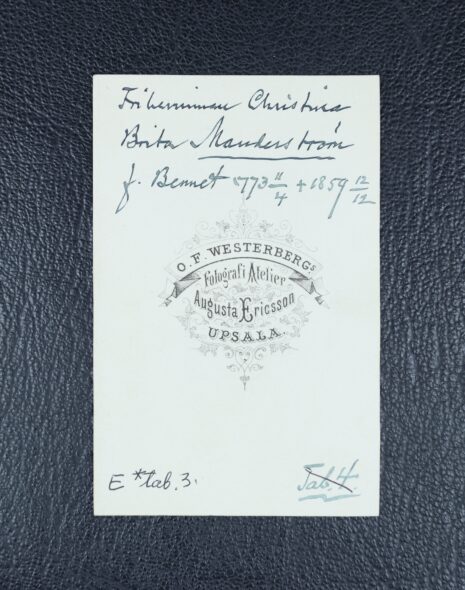 Friherrinnan Christina
Brita Manderström
f. Bennet 1773 11/4 + 1859 12/12
O. F. WESTERBERGs
Fotografi Atelier
Augusta Ericsson
UPSALA.
E *tab. 3.
Tab. 4.